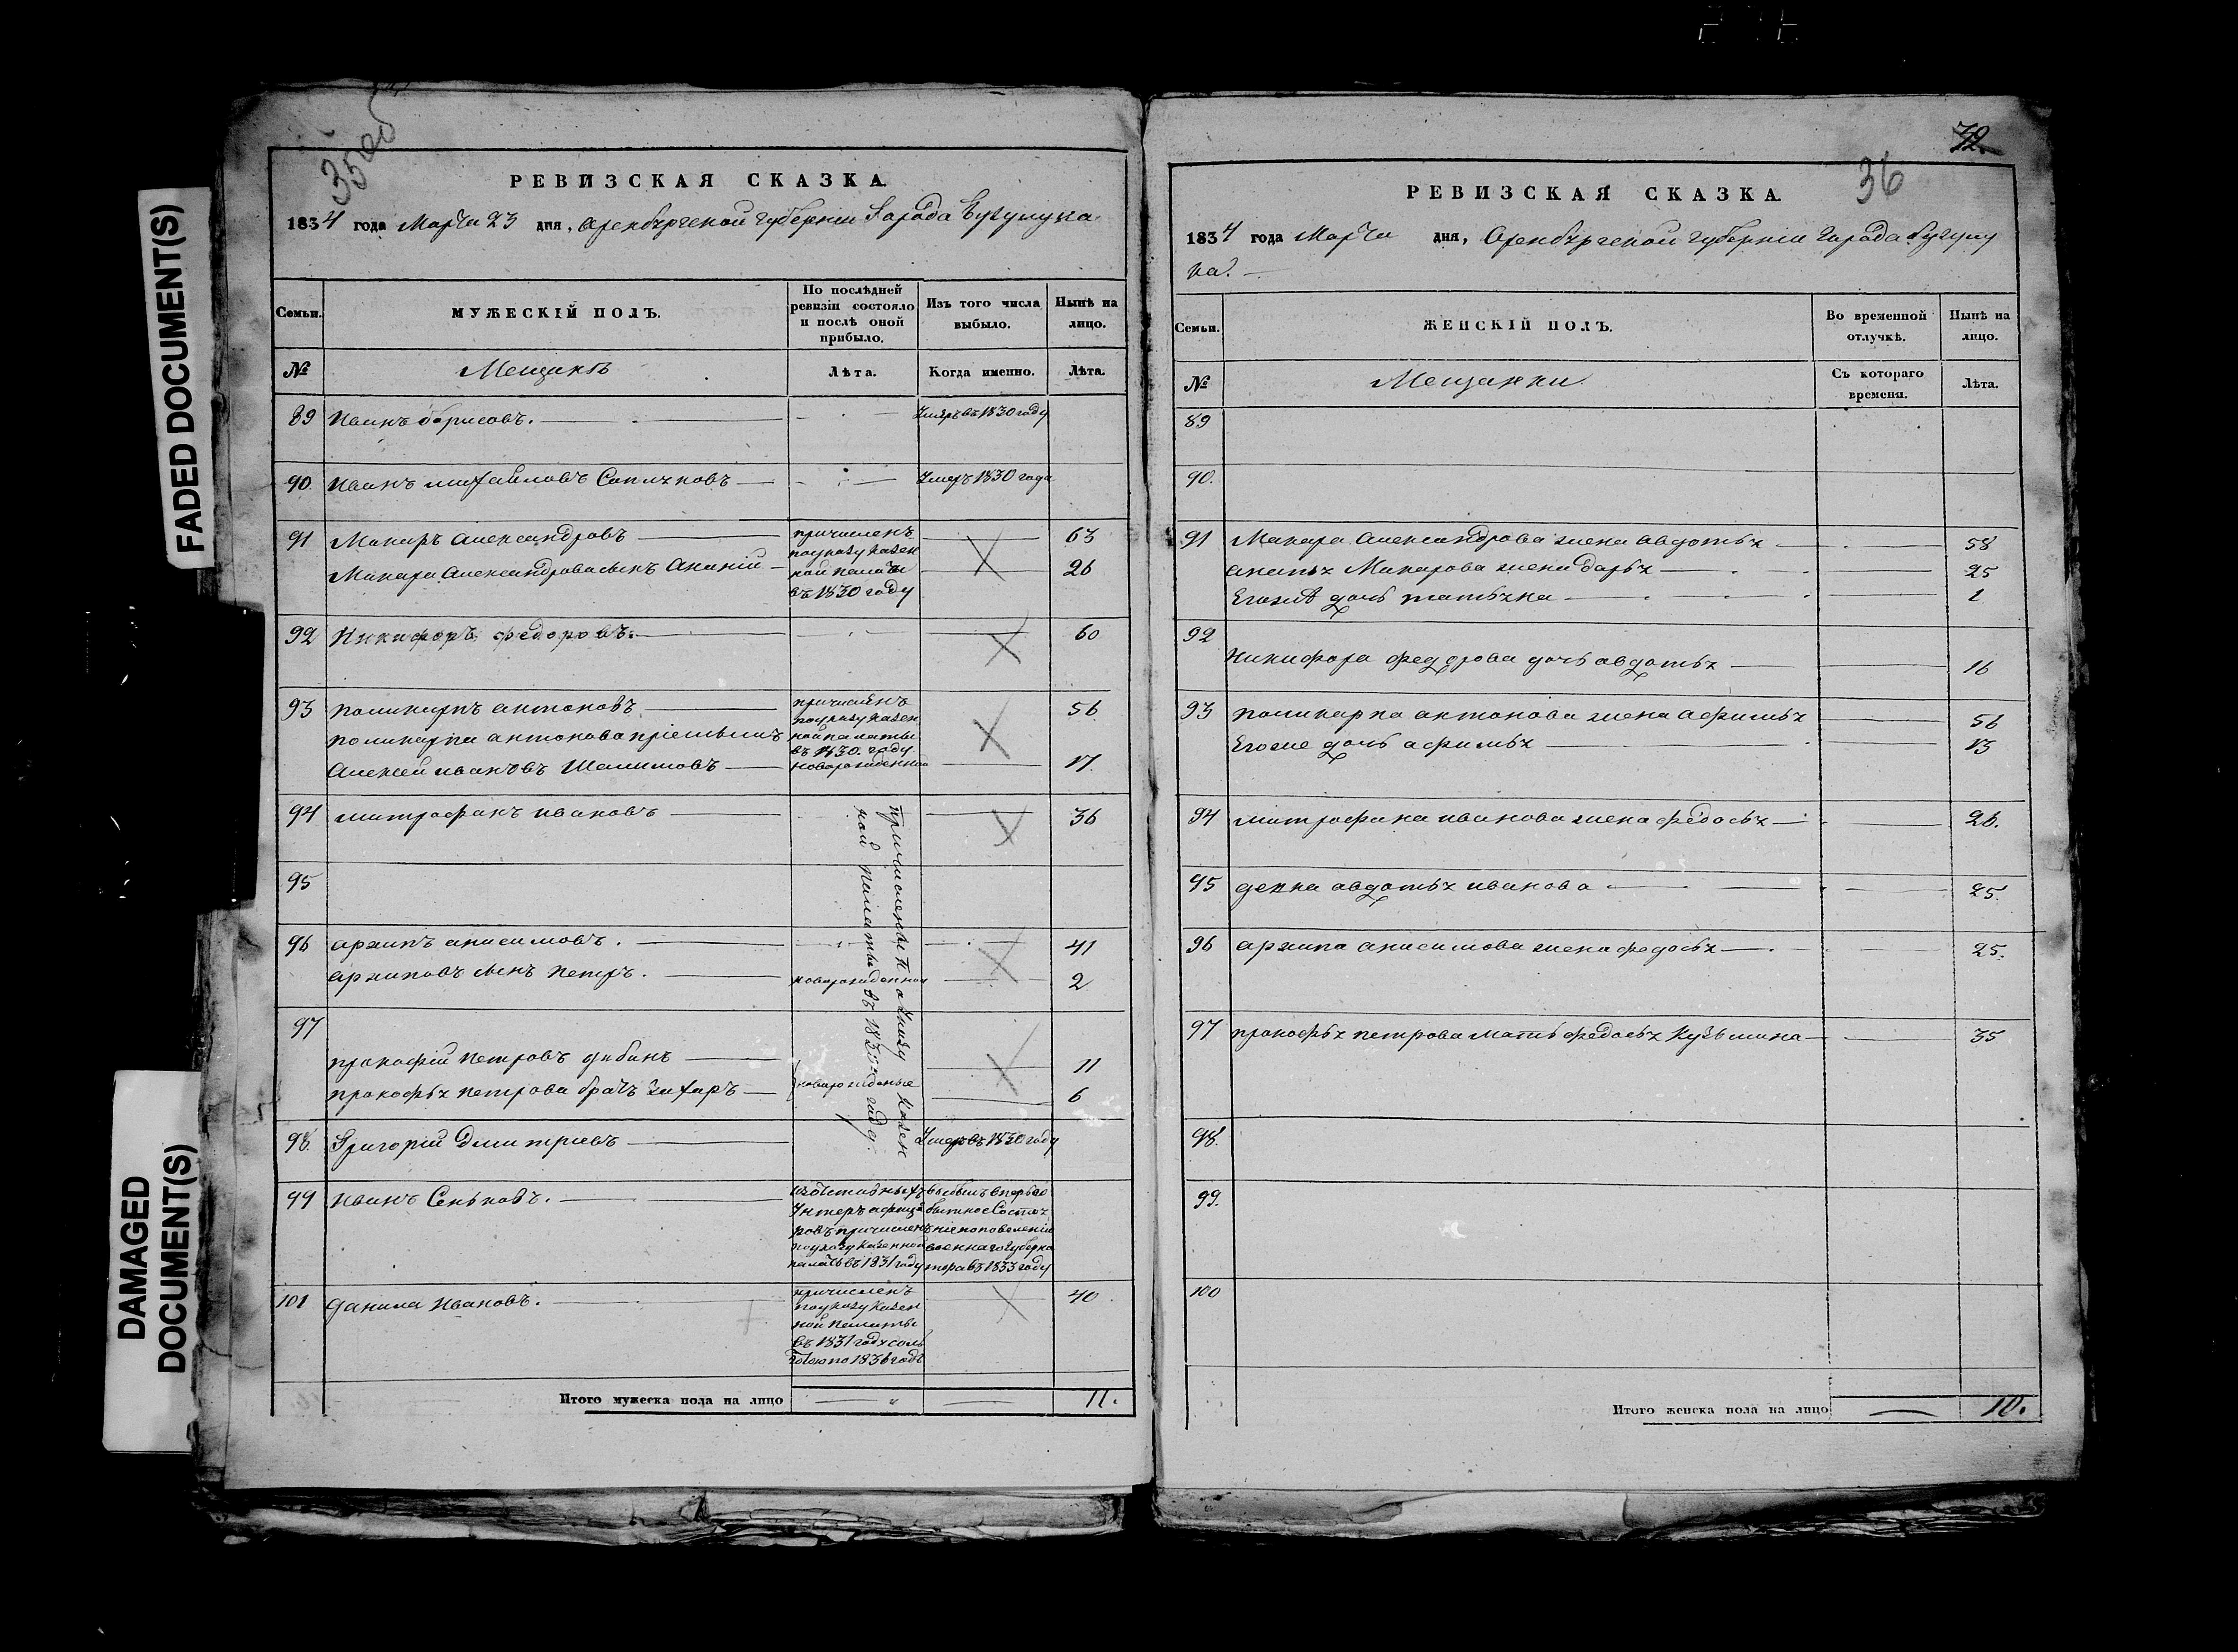 FADED DOCUMENT(S)
DAMAGED
DOCUMENT(S)
35об
РЕВИЗСКАЯ СКАЗКА.
1834 года Марта 23 дня, Оренбургской губернии Города Бузулука
Семьи.
МУЖЕСКІЙ ПОЛЪ.
По послѣдней
ревизіи состояло
и послѣ оной
прибыло.
Изъ того числа
выбыло.
Нынѣ на
лицо.
№
Мещанъ
Лѣта.
Когда именно.
Лѣта.
89 Иванъ борисовъ. Умеръ въ 1830 году
90. Иванъ михайловъ Умеръ 1830 года
91 Макаръ Александровъ 63
Макара Александрова сынъ Ананій 26
причисленъ
по указу казен
ной палаты
въ 1830 году
92 Никифоръ федоровъ. 60
93 поликарпъ антоновъ 56
поликарпа антонова пріемышъ
Алексей ивановъ 17.
причисленъ
по указу казен
ной палаты
въ 1830. году
новорожденной
94 митрофанъ ивановъ 36
95
96 архипъ анисимовъ. 41
архиповъ сынъ петръ. новорожденной 2
97
прокофій петровъ 11
прокофья петрова братъ захаръ новорожденые 6
причислены по указу казен
ной палаты въ 1830 году.
98. Григорій Дмитриевъ Умеръ въ 1830 году
99 Иванъ Сеньковъ.
изъ отставныхъ
Унтеръ офице
ровъ причисленъ
по указу казенной
палаты въ 1831 году
выбылъ в перво
бытное Состоя
ніе по повеленію
военнаго губерна
тора въ 1833 году
101 данила Ивановъ. 40
причисленъ
по указу казен
ной палаты
въ 1831 году соль
готою по 1836 годъ
Итого мужеска пола на лицо 11.
72.
36
РЕВИЗСКАЯ СКАЗКА.
1834 года Марта дня, Оренбургской губерніи города бузулу
ка.
Семьи.
ЖЕНСКІЙ ПОЛЪ.
Во временной
отлучкѣ.
Нынѣ на
лицо.
№
Мещанки
Съ котораго
времени.
Лѣта.
89
90.
91 Макара Александрова жена авдотья 58
ананья Макарова жена дарья 25
Егоже дочь татьяна 1
92
Никифора федорова дочь авдотья 16
93 поликарпа антонова жена афимья 56
Егоже дочь афимья 13
94 митрофана иванова жена федосья 26.
95 девка авдотья иванова 25.
96 архипа анисимова жена федосья 25.
97 прокофья петрова мать федосья Кузьмина 35
98.
99.
100
Итого женска пола на лицо 10.